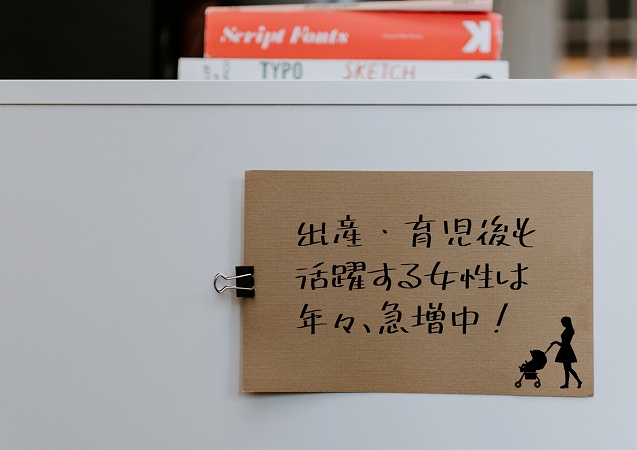 Script Fonts
K
TYPO SKETCH
出産・育児後も
活躍する女性は
年々、急増中！